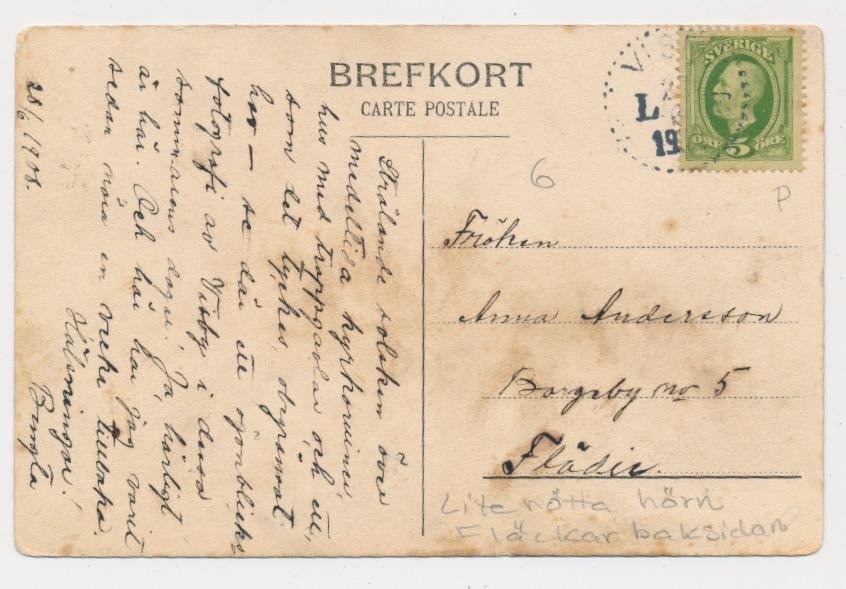 BREFKORT
CARTE POSTALE
SVERIGE
ÖRE 5 ÖRE
VIS
L
19
6
P
Fröken
Anna Andersson
Borgeby no 5
Flädie.
Lite nötta hörn
Fläckar baksidan
Strålande solsken över
medeltida kyrkoruiner,
hus med trappgavlar och ett,
som det tyckes, obegränsat
hav — se där ett ögonblicks-
fotografi av Visby i dessa
sommarens dagar! Ja, härligt
är här. Och här har jag varit
sedan nära en vecka tillbaka.
Hälsningar!
Bengta
28/6 1908.